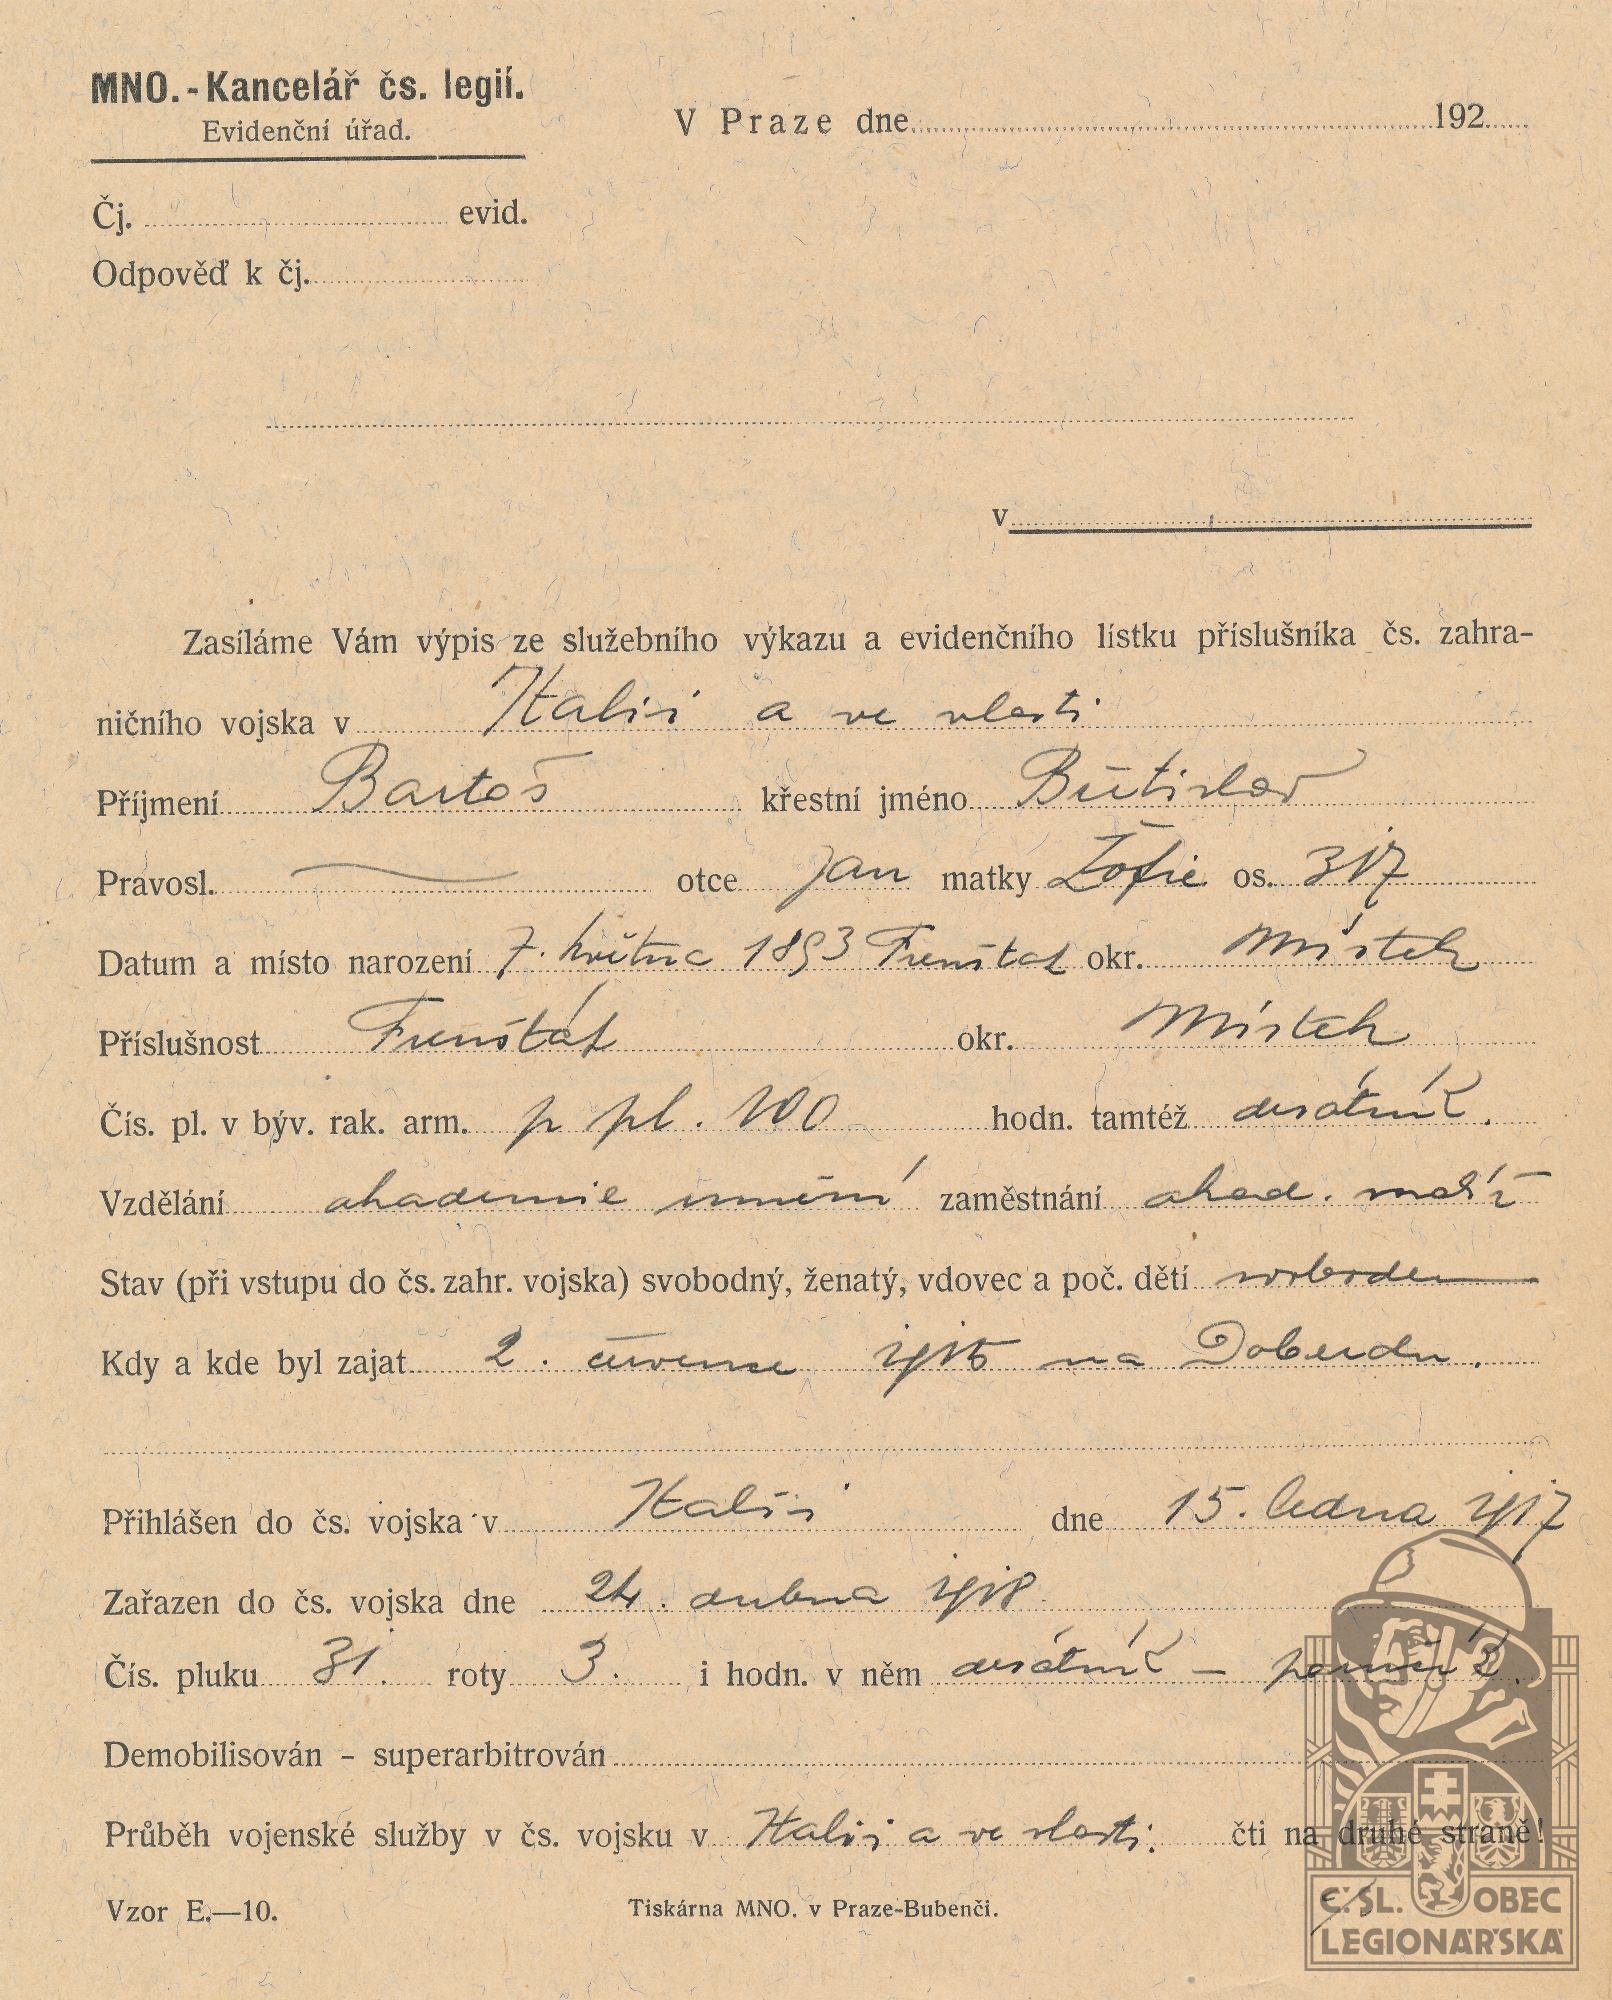 MNO.-Kancelář čs. legií.
Evidenční úřad.
V Praze dne 192
Čj. evid.
Odpověď k čj.
v
Zasíláme Vám výpis ze služebního výkazu a evidenčního lístku příslušníka čs. zahra-
ničního vojska v Italii a ve vlasti
Příjmení Bartoš křestní jméno Břetislav
Pravosl. otce Jan matky Žofie os. 317
Datum a místo narození 7. května 1893 Frenštat okr. Místek
Příslušnost Frenštát okr. Místek
Čís. pl. v býv. rak. arm. p pl. 100 hodn. tamtéž desátník.
Vzdělání akademie umění zaměstnání akad. malíř
Stav (při vstupu do čs. zahr. vojska) svobodný, ženatý, vdovec a poč. dětí svoboden
Kdy a kde byl zajat 2. července 1915 na Doberdu.
Přihlášen do čs. vojska v Italii dne 15. ledna 1917
Zařazen do čs. vojska dne 24. dubna 1918
Čís. pluku 31. roty 3. i hodn. v něm desátník -
Demobilisován - superarbitrován
Průběh vojenské služby v čs. vojsku v Italii a ve vlasti. čti na druhé straně!
Vzor E.—10. Tiskárna MNO. v Praze-Bubenči.
Č. SL. OBEC
LEGIONÁŘSKÁ